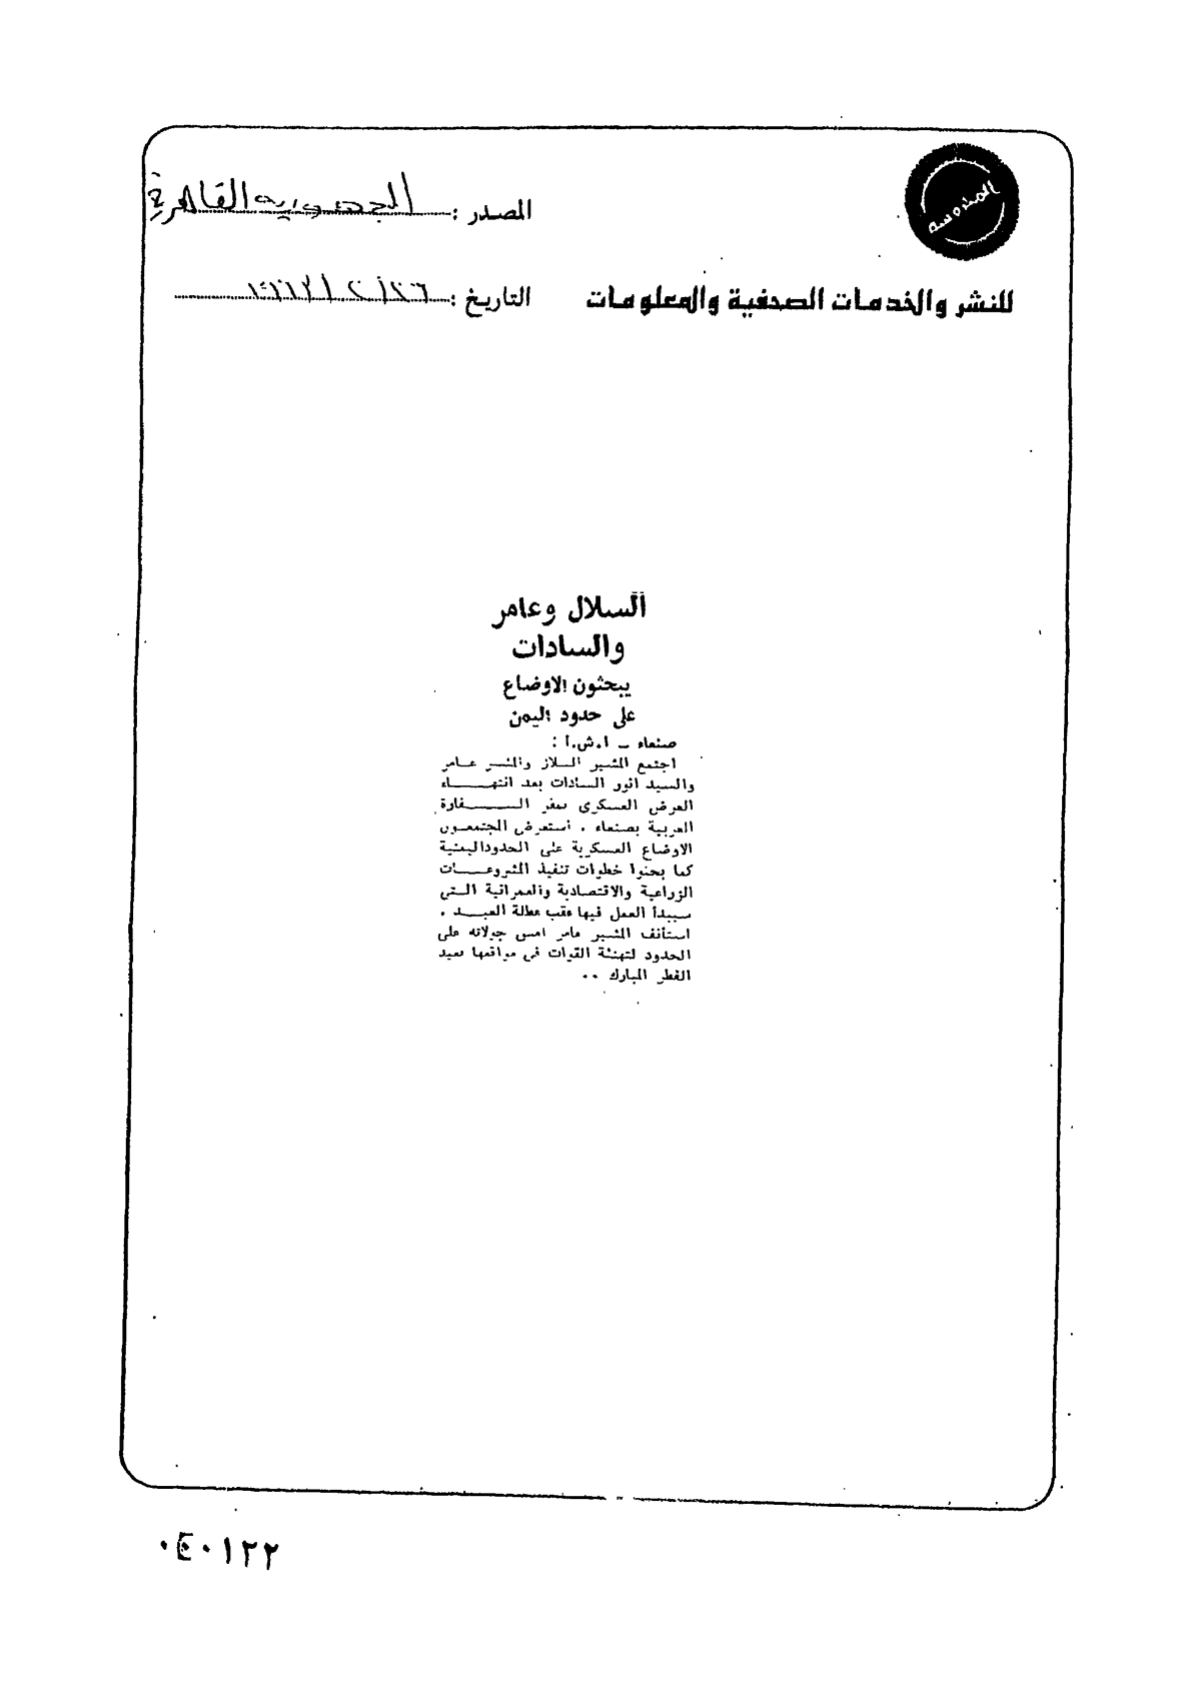 المحروسة
المصدر : الجمهورية القاهرية
للنشر والخدمات الصحفية والمعلومات
التاريخ : ٢٦ / ٢ /
السلال وعامر
والسادات
يبحثون الاوضاع
على حدود اليمن
صنعاء ــ ا.ش.أ :
اجتمع المشير السلال والمشير عـامر
والسيد انور السادات بعد انتهـــاء
العرض العسكرى بمقر الـــسفارة
العربية بصنعاء . استعرض المجتمعون
الاوضاع العسكرية على الحدوداليمنية
كما بحثوا خطوات تنفيذ المشروعـــات
الزراعية والاقتصادية والعمرانية الـتى
سيبدأ العمل فيها عقب عطلة العيـــد .
استأنف المشير عامر امس جولاته على
الحدود لتهنئة القوات فى مواقعها بعيد
الفطر المبارك ..